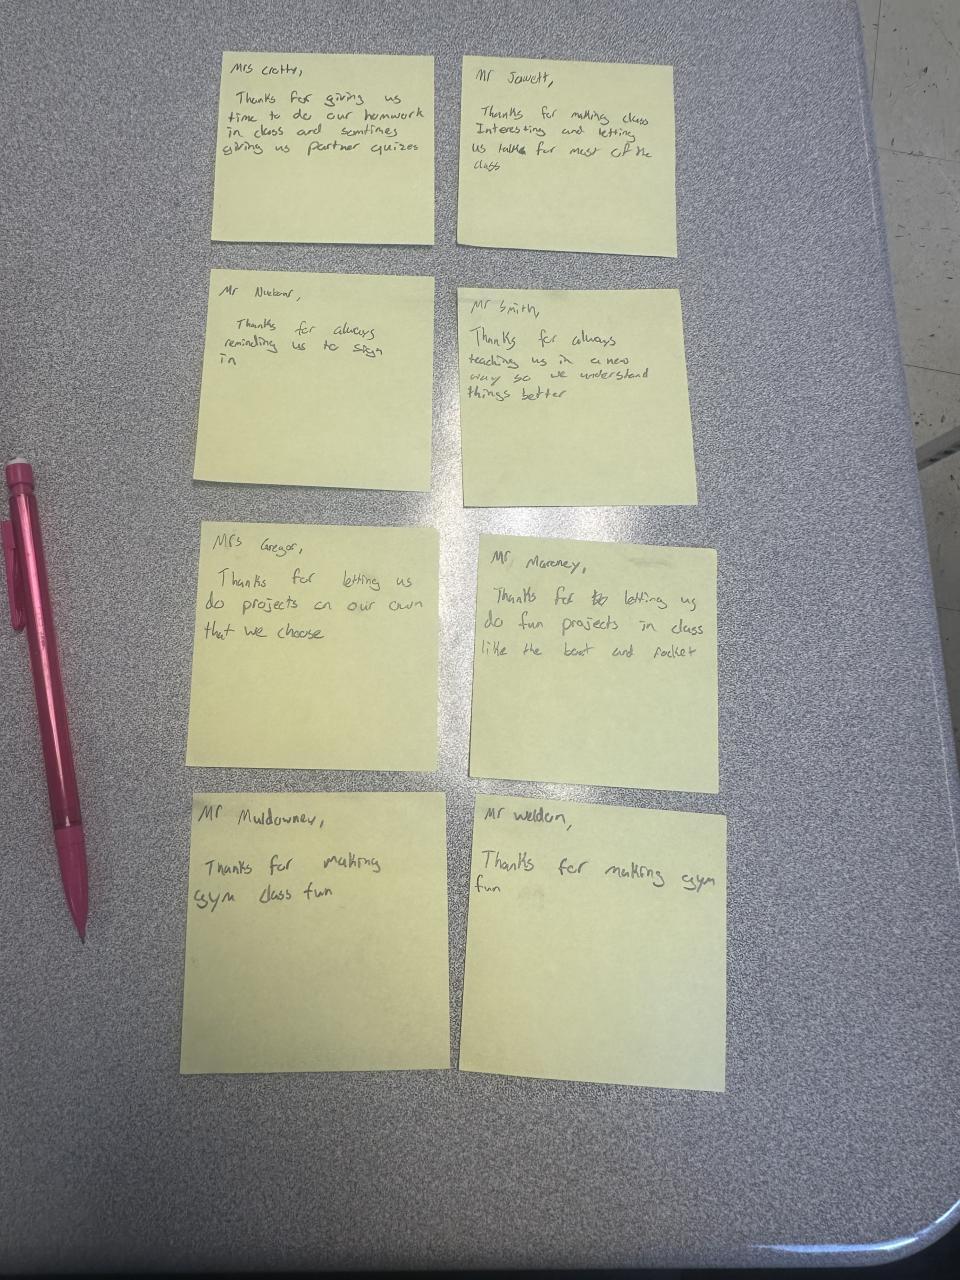 Mrs Crotty,
Thanks for giving us
time to do our homwork
in class and somtimes
giving us partner quizes
Mr Jowett,
Thanks for making class
Interesting and letting
us talk for most of the
class
Mr
Thanks for always
reminding us to sign
in
Mr Smith,
Thanks for always
teaching us in a new
way so we understand
things better
Mrs Gregor,
Thanks for letting us
do projects on our own
that we choose
Mr Maroney,
Thanks for letting us
do fun projects in class
like the boat and rocket
Mr Muldowney,
Thanks for making
gym class fun
Mr weldon,
Thanks for making gym
fun